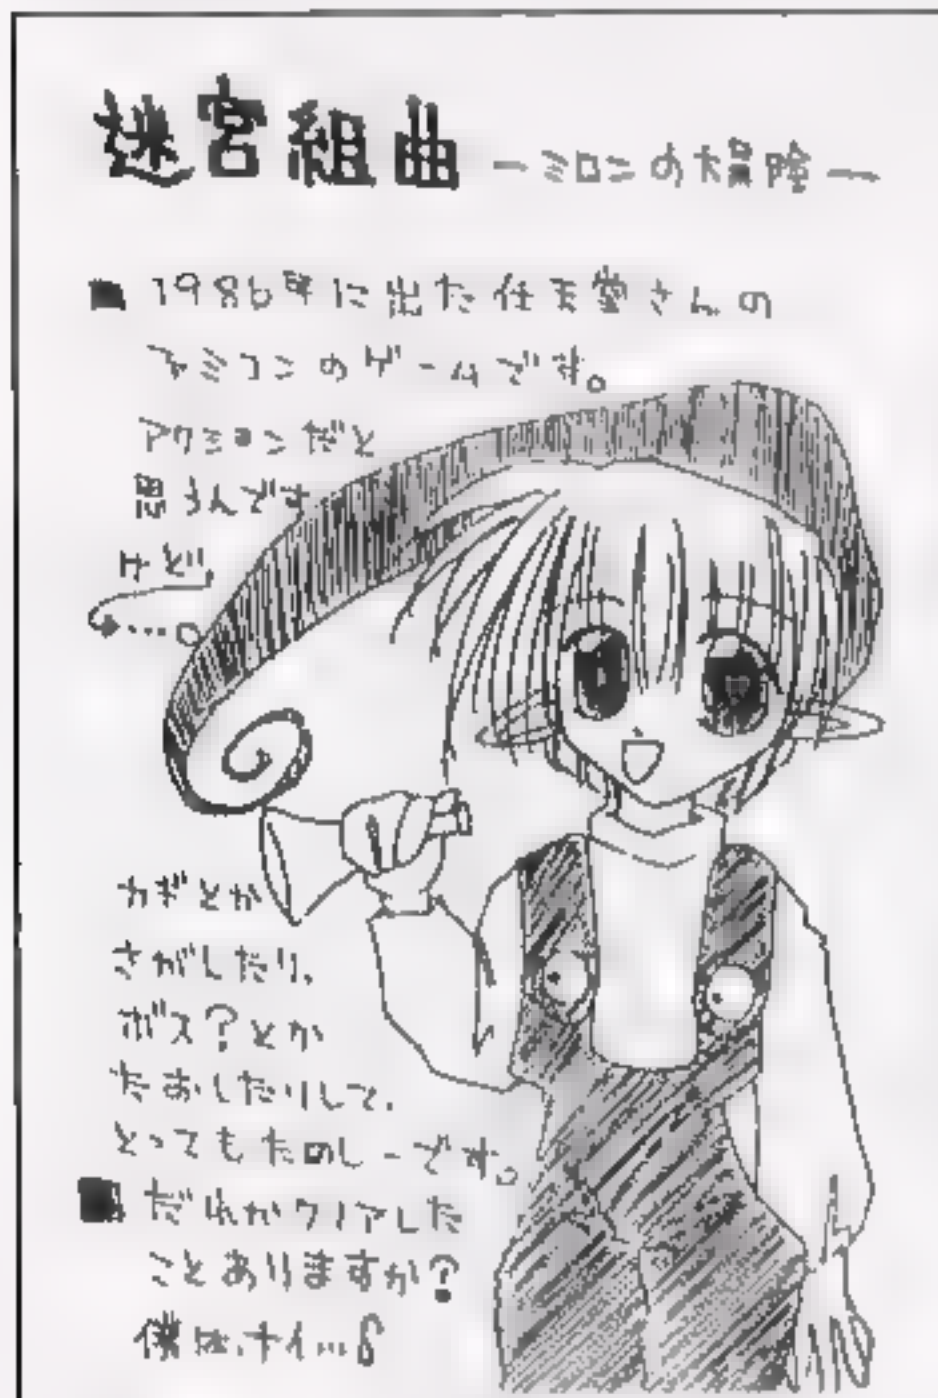 迷宮組曲 ーミロンの大冒険ー
■ 1986年に出た任天堂さんの
ファミコンのゲームです。
アクションだと
思うんです
けど
…。
カギとか
さがしたり、
ボス?とか
たおしたりして、
とってもたのしーです。
■ だれかクリアした
ことありますか?
僕は、ナイ…